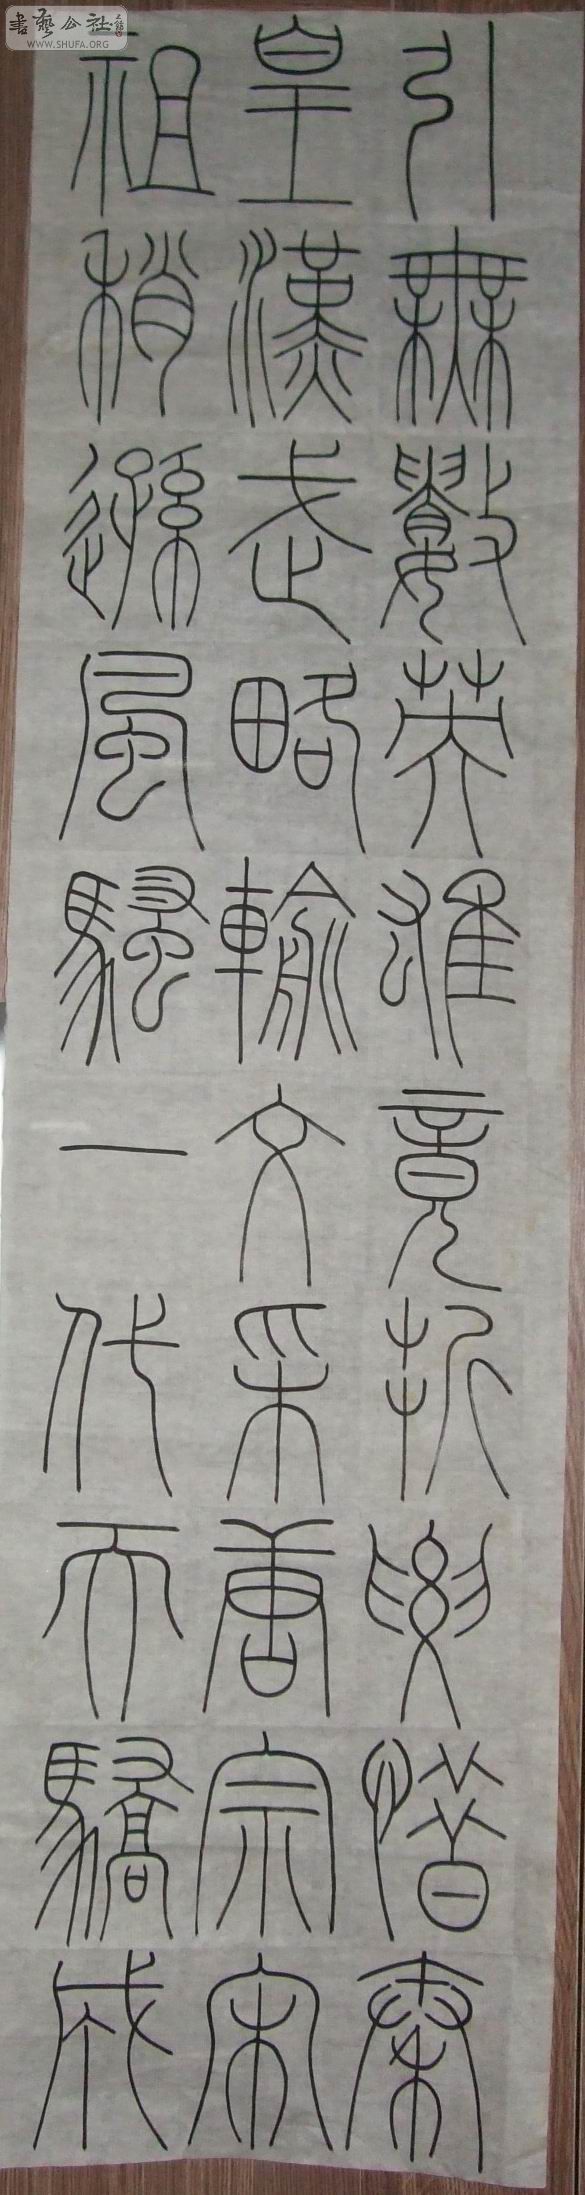 引無數英雄竟折要惜秦
皇漢武略輸文采唐宗宋
祖稍遜風騷一代天驕成
書藝公社
WWW.SHUFA.ORG